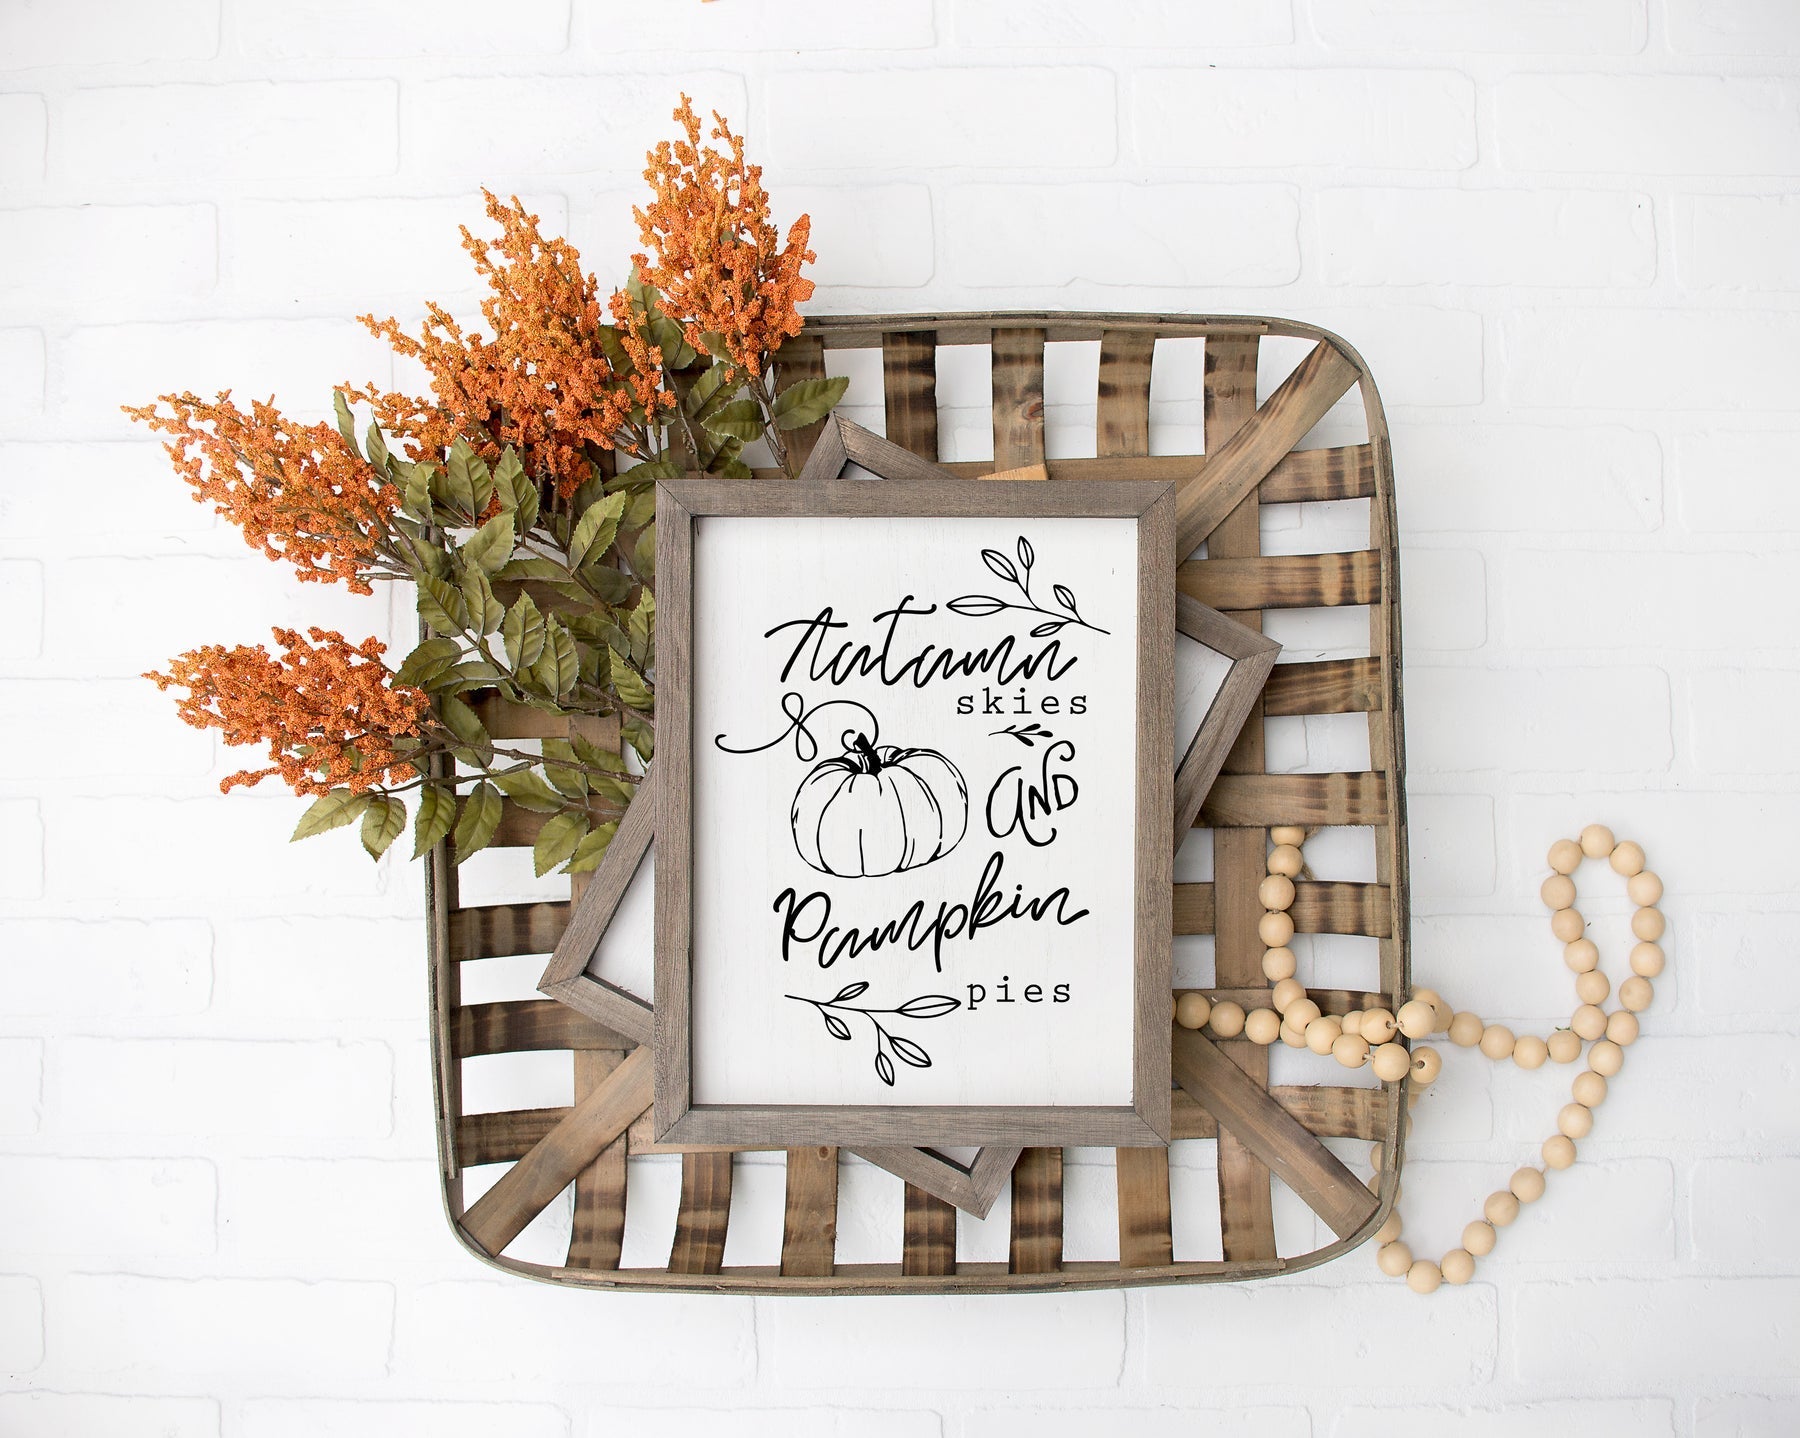 Autumn
skies
AND
Pumpkin
pies